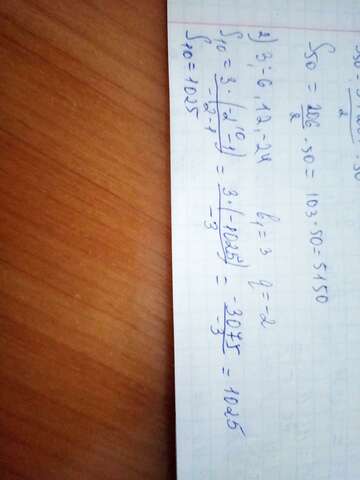 S₅₀ = 206/2 · 50 = 103 · 50 = 5150
2) 3; -6, 12, -24 b₁ = 3 q = -2
S₁₀ = 3 · (-2¹⁰ - 1)/-2 - 1 = 3 · (-1025)/-3 = -3075/-3 = 1025
S₁₀ = 1025